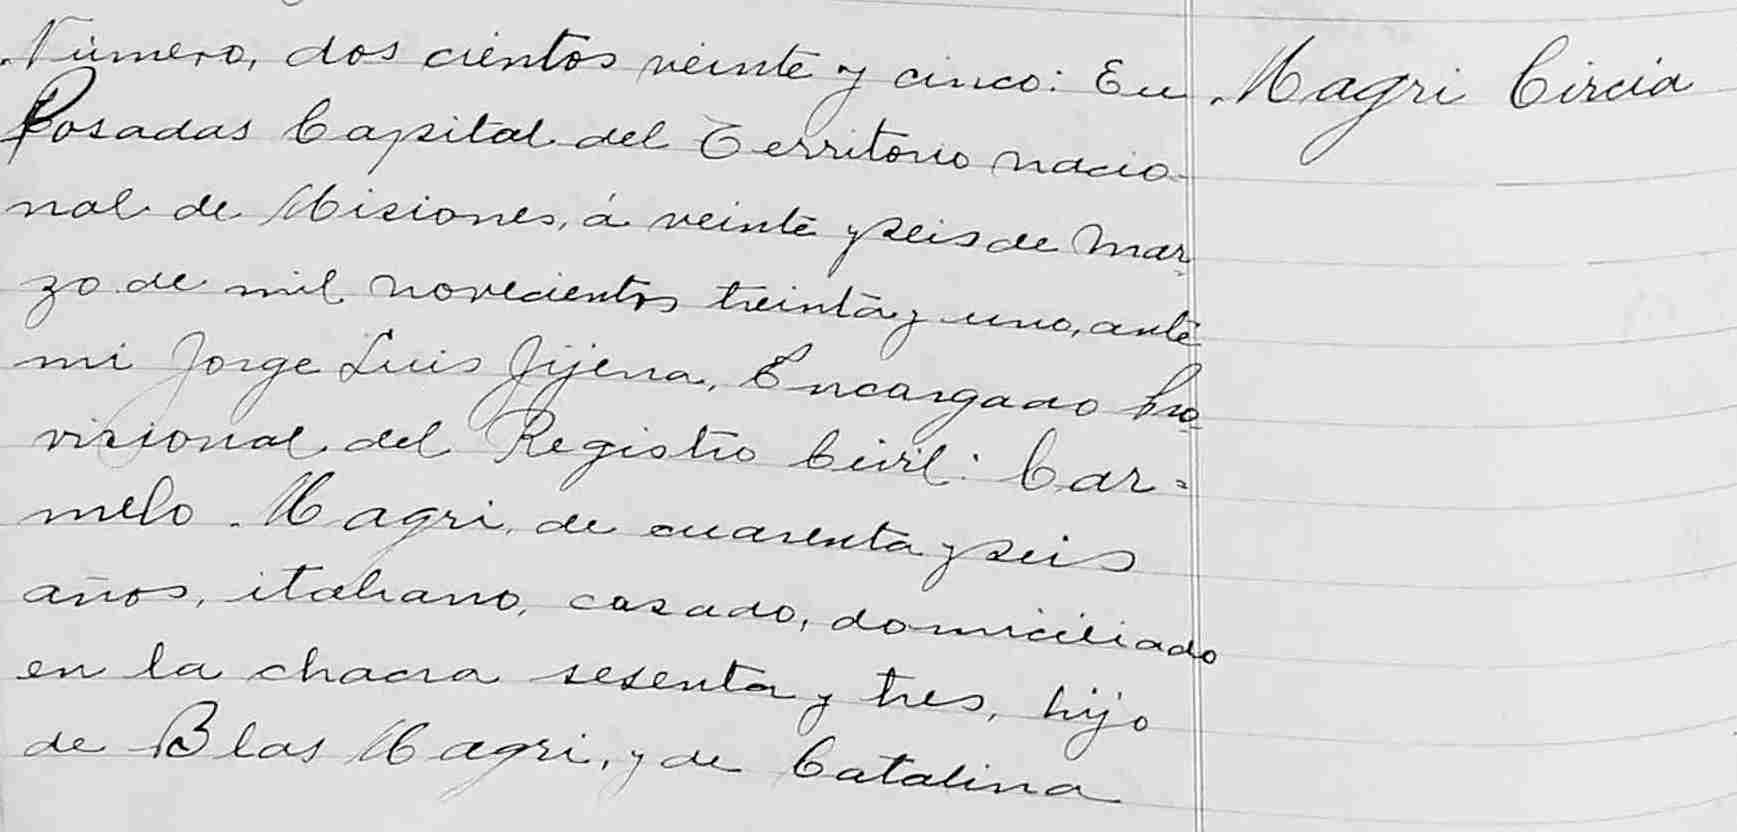 Número, dos cientos veinte y cinco: En
Magri Circia
Posadas Capital del Territorio nacio-
nal de Misiones, á veinte y seis de Mar-
zo de mil novecientos treinta y uno, ante
mi Jorge Luis Jijena, Encargado Pro-
visional del Registro Civil: Car=
melo Magri, de cuarenta y seis
años, italiano, casado, domiciliado
en la chacra sesenta y tres, hijo
de Blas Magri, y de Catalina